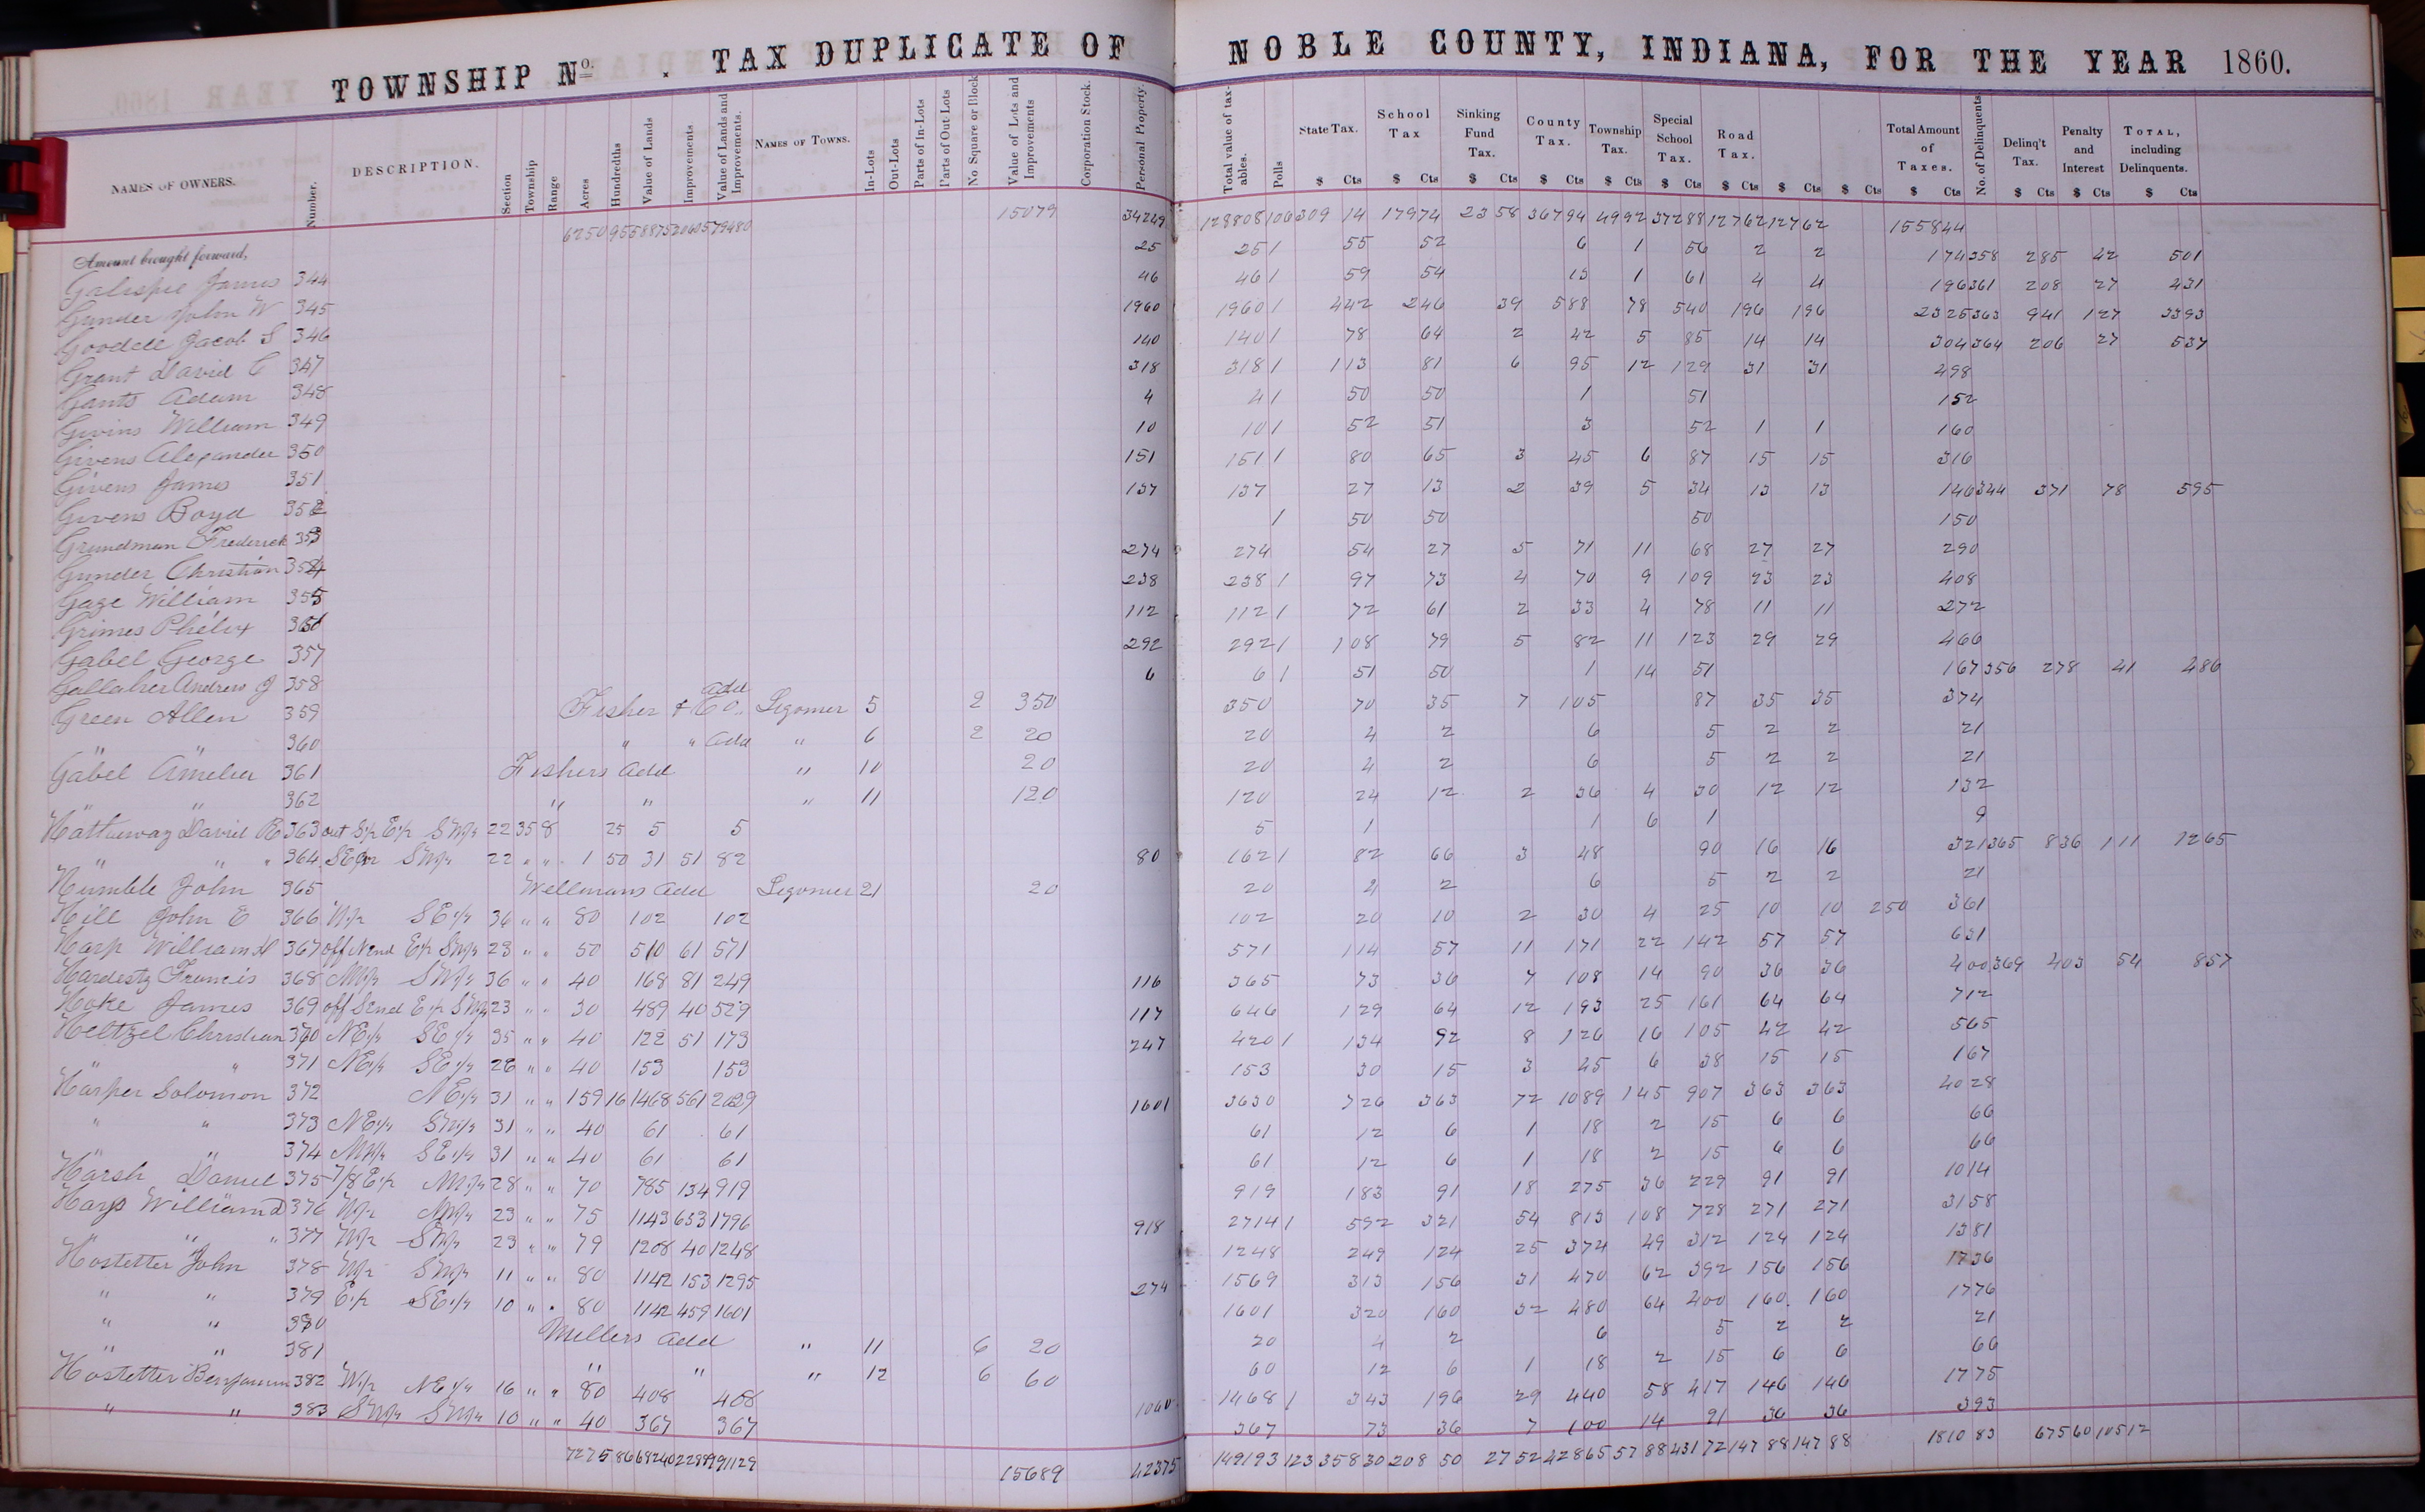 TOWNSHIP No. . TAX DUPLICATE OF NOBLE COUNTY, INDIANA, FOR THE YEAR 1860.
NAMES OF OWNERS. Number. DESCRIPTION. Section Township Range Acres Hundredths Value of Lands Improvements Value of Lands and Improvements. NAMES OF TOWNS. In-Lots Out-Lots Parts of In-Lots Parts of Out-Lots No Square or Block Value of Lots and Improvements Corporation Stock. Personal Property. Total value of taxables. Polls State Tax. $ Cts School Tax $ Cts Sinking Fund Tax. $ Cts County Tax. $ Cts Township Tax. $ Cts Special School Tax. $ Cts Road Tax. $ Cts $ Cts $ Cts Total Amount of Taxes. $ Cts No. of Delinquents Delinq't Tax. $ Cts Penalty and Interest $ Cts TOTAL, including Delinquents. $ Cts
Amount brought forward, 6250 95 58875 20605 79480 15079 34249 128808 106 309 14 179 74 23 58 367 94 49 92 372 88 127 62 127 62 1558 44
Galispie James 344 25 25 1 55 52 6 1 56 2 2 174 358 285 42 501
Gunder John W 345 46 46 1 59 54 13 1 61 4 4 196 361 208 27 431
Goodell Jacob S 346 1960 1960 1 442 246 39 588 78 540 196 196 2325 363 941 127 3393
Grant David C 347 140 140 1 78 64 2 42 5 85 14 14 304 364 206 27 537
Gants Adam 348 318 318 1 113 81 6 95 12 129 31 31 498
Givins William 349 4 4 1 50 50 1 51 152
Givens Alexander 350 10 10 1 52 51 3 52 1 1 160
Givens James 351 151 151 1 80 65 3 45 6 87 15 15 316
Givens Boyd 352 137 137 27 13 2 39 5 34 13 13 146 344 371 78 595
Grundman Frederick 353 1 50 50 50 150
Gunder Christian 354 274 274 54 27 5 71 11 68 27 27 290
Gage William 355 238 238 1 97 73 4 70 9 109 23 23 408
Grimes Phelix 356 112 112 1 72 61 2 33 4 78 11 11 272
Gabel George 357 292 292 1 108 79 5 82 11 123 29 29 466
Gallaher Andrew J 358 6 6 1 51 50 1 14 51 167 356 278 41 486
Green Allen 359 Fisher & Co. Add Ligonier 5 2 350 350 70 35 7 105 87 35 35 374
" " 360 " " Add " 6 2 20 20 4 2 6 5 2 2 21
Gabel Amelia 361 Fishers Add " 10 20 20 4 2 6 5 2 2 21
" " 362 " " " 11 120 120 24 12 2 36 4 30 12 12 132
Hathaway David R 363 22 35 8 25 5 5 5 1 1 6 1 9
" " " 364 22 " " 1 50 31 51 82 80 162 1 82 66 3 48 90 16 16 321 365 836 111 1265
Humble John 365 Wellmans Add Ligonier 21 20 20 4 2 6 5 2 2 21
Hill John E 366 W½ SE¼ 36 " " 80 102 102 102 20 10 2 30 4 25 10 10 250 361
Harp William H 367 off N end E½ SW¼ 23 " " 50 510 61 571 571 114 57 11 171 22 142 57 57 631
Hardesty Francis 368 NW¼ SW¼ 36 " " 40 168 81 249 116 365 73 36 7 108 14 90 36 36 400 369 403 54 857
Hoke James 369 off S end E½ SW¼ 23 " " 30 489 40 529 117 646 129 64 12 193 25 161 64 64 712
Heltzel Christian 370 NE¼ SE¼ 35 " " 40 122 51 173 247 420 1 134 92 8 126 16 105 42 42 565
" " 371 NE¼ SE¼ 26 " " 40 153 153 153 30 15 3 45 6 38 15 15 167
Harper Solomon 372 NE¼ 31 " " 159 16 1468 561 2029 1601 3630 726 363 72 1089 145 907 363 363 4028
" " 373 NE¼ SW¼ 31 " " 40 61 61 61 12 6 1 18 2 15 6 6 66
" " 374 NW¼ SE¼ 31 " " 40 61 61 61 12 6 1 18 2 15 6 6 66
Harsh Daniel 375 7/8 E½ NW¼ 28 " " 70 785 134 919 919 183 91 18 275 36 229 91 91 1014
Harp William D 376 W½ NW¼ 23 " " 75 1143 653 1796 918 2714 1 592 321 54 813 108 728 271 271 3158
" " " 377 W½ SW¼ 23 " " 79 1208 40 1248 1248 249 124 25 374 49 312 124 124 1381
Hostetter John 378 W½ SW¼ 11 " " 80 1142 153 1295 274 1569 313 156 31 470 62 392 156 156 1736
" " 379 E½ SE¼ 10 " " 80 1142 459 1601 1601 320 160 32 480 64 400 160 160 1776
" " 380 Millers Add " 11 6 20 20 4 2 6 5 2 2 21
" " 381 " " " 12 6 60 60 12 6 1 18 2 15 6 6 66
Hostetter Benjamin 382 W½ NE¼ 16 " " 80 408 408 1060 1468 1 343 196 29 440 58 417 146 146 1775
" " 383 SW¼ SW¼ 10 " " 40 367 367 367 73 36 7 100 14 91 36 36 393
7275 86 68240 22889 91129 15689 42375 149193 123 358 30 208 50 27 52 428 65 57 88 431 72 147 88 147 88 1810 83 67 56 0 10512